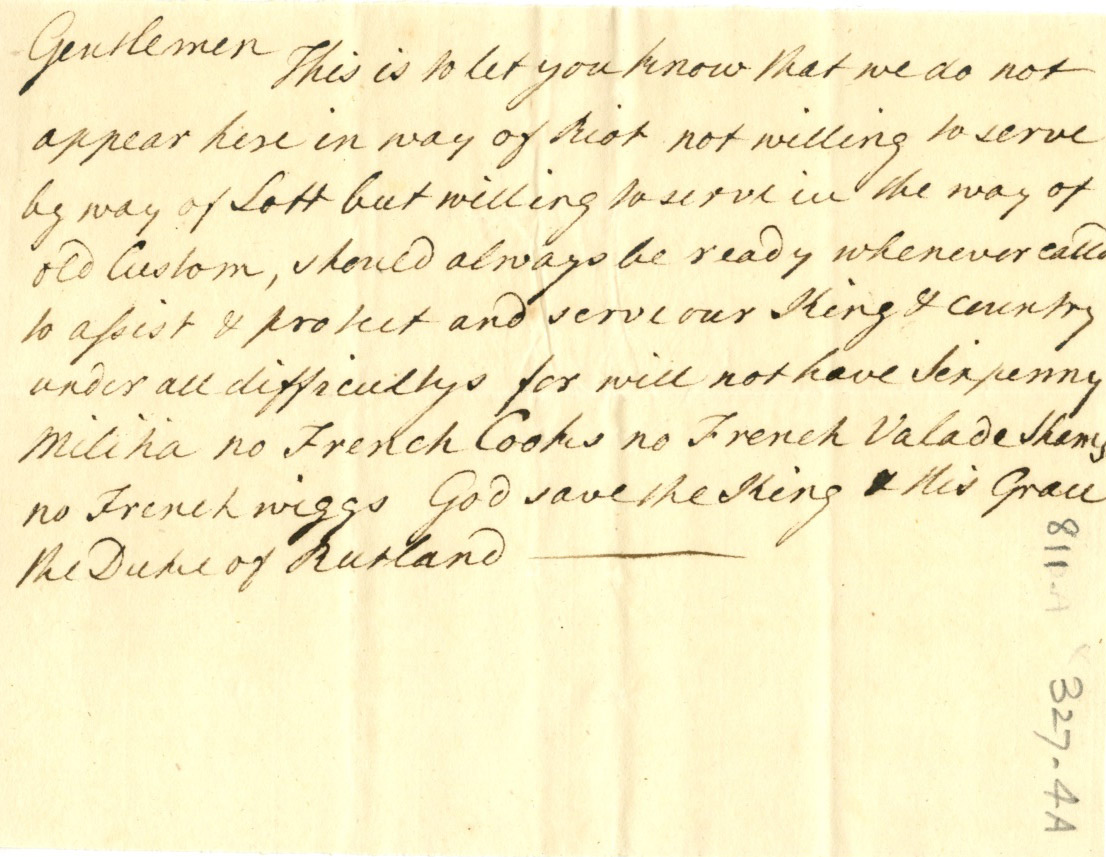 Gentlemen This is to let you know that we do not
appear here in way of Riot not willing to serve
by way of Lott but willing to serve in the way of
old Custom, should always be ready whenever calld
to assist & protect and serve our King & country
under all difficultys for will not have Sixpenny
Militia no French Cooks no French Valade Shams
no French wiggs God save the King & His Grace
the Duke of Rutland
811-A
327-4A